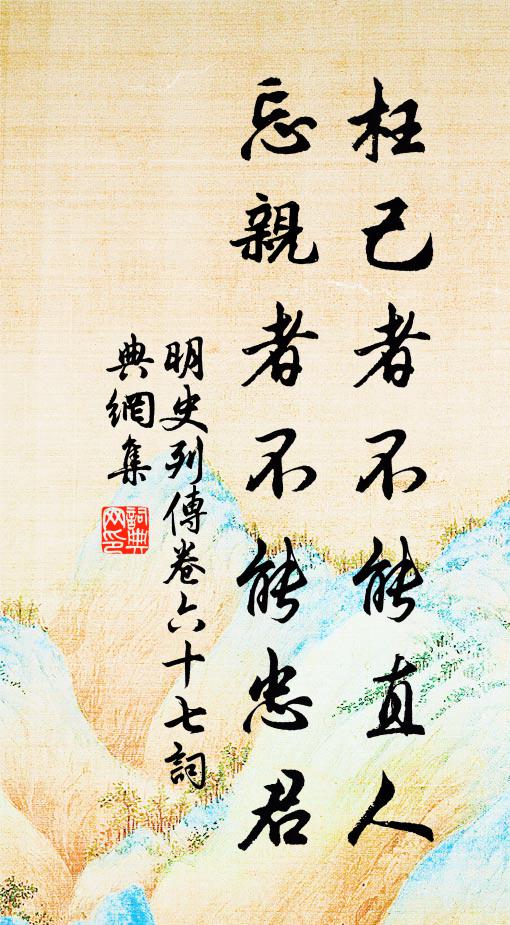 枉己者不能直人
忘親者不能忠君
明史列傳卷六十七詞
典網集
詞典
网印